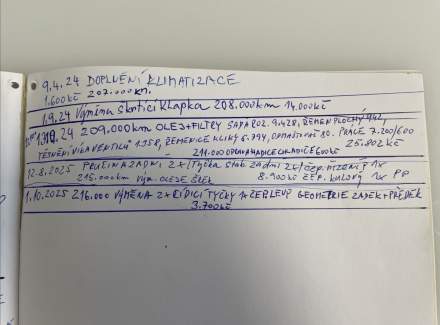 9.4.24 DOPLNĚNÍ KLIMATIZACE
1.600Kč 207.000km.
1.9.24 Výměna škrtící klapka 208.000km 14.000Kč
.24 209.000km OLEJ+FILTRY SADA ROZ. 9.428, ŘEMEN PLOCHÝ 942,
TĚSNĚNÍ VÍKA VENTILŮ 1.258, ŘEMENICE KLIKY 6.794, 80. PRÁCE 7.200/600
25.802Kč
211.000 HADICE CHLADIČE 600Kč
12.8.2025 PRUŽINA ZADNÍ 2x/Tyčka stab. zadní 2x/čep. řízení 1x
215.000km výp. OLEJE 8.900Kč ČEP. kulový 1x PP
1.10.2025 216.000 VÝMĚNA 2x ŘÍDÍCÍ TYČKY GEOMETRIE ZADEK+PŘEDEK
3.700Kč